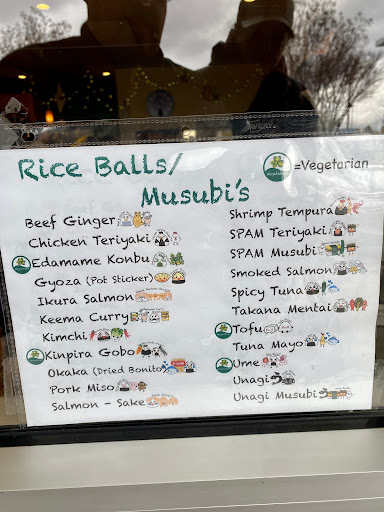 Rice Balls/
Musubi's
=Vegetarian
Beef Ginger
Chicken Teriyaki
Edamame Konbu
Gyoza (Pot Sticker)
Ikura Salmon
Keema Curry
Kimchi
Kinpira Gobo
Okaka (Dried Bonito)
Pork Miso
Salmon - Sake
Shrimp Tempura
SPAM Teriyaki
SPAM Musubi
Smoked Salmon
Spicy Tuna
Takana Mentai
Tofu
Tuna Mayo
Ume
Unagi
Unagi Musubi